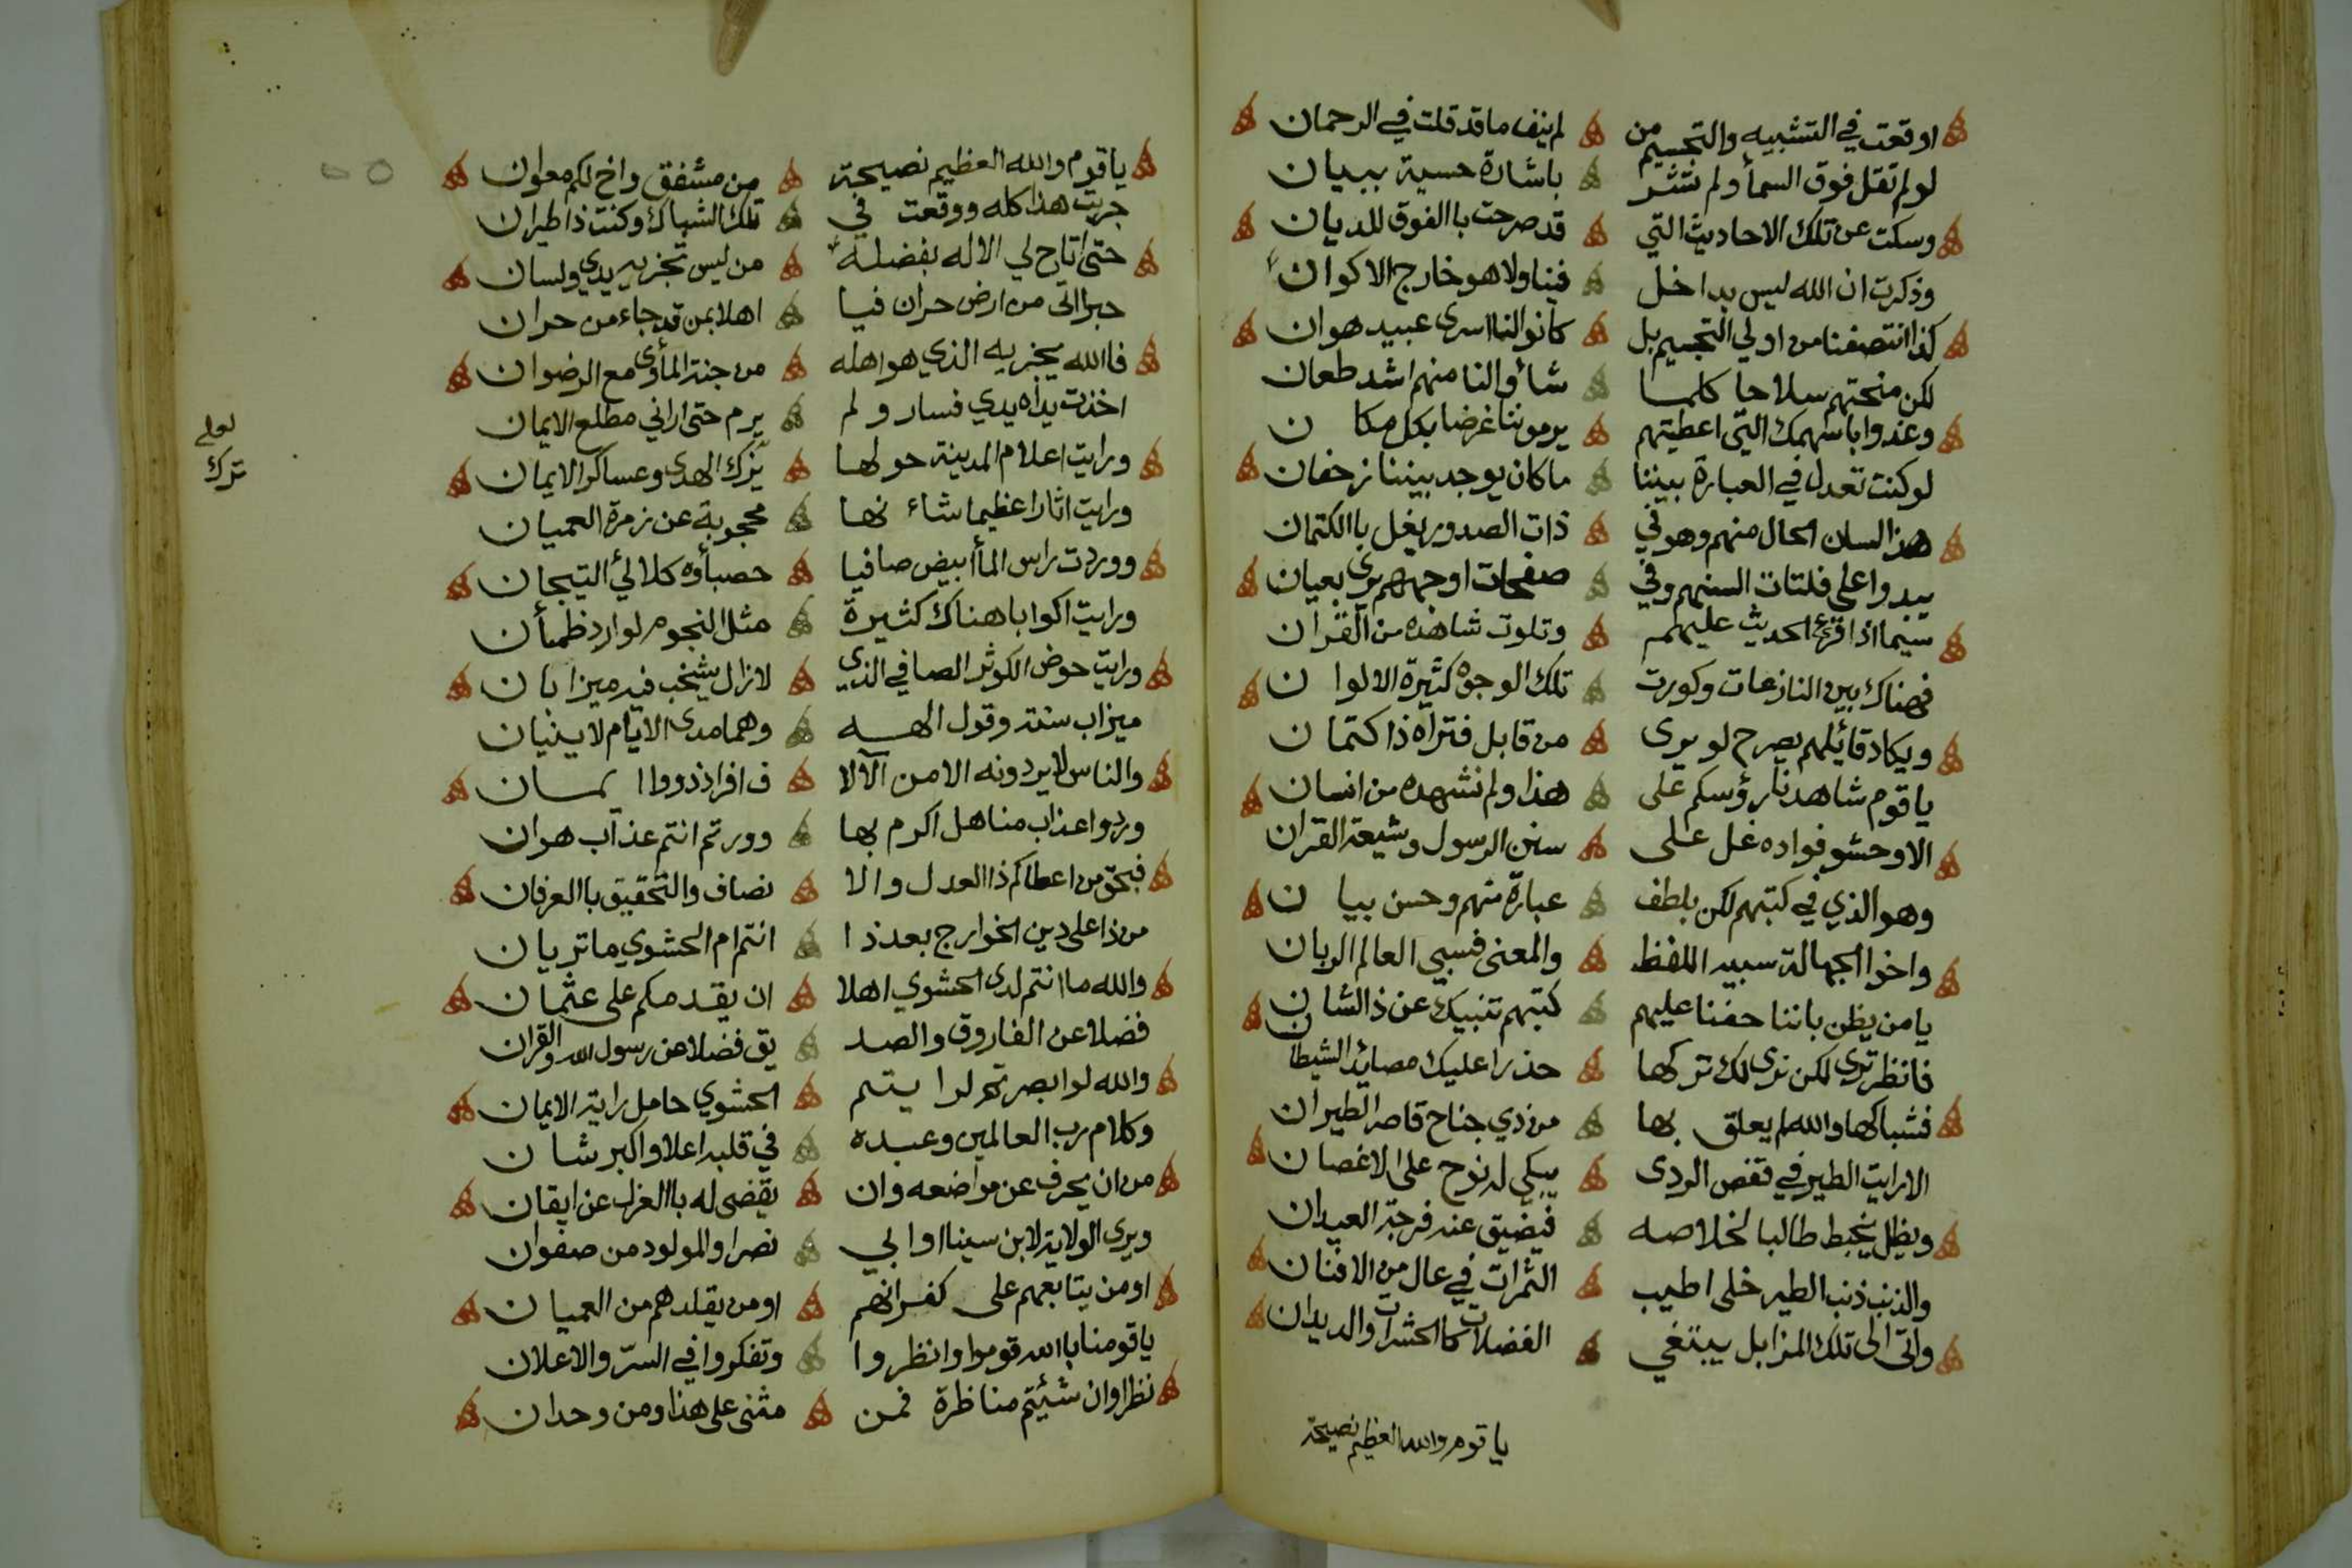 اوقعت في التشبيه والتجسيم من لم ينف ما قد قلت في الرحمان
لو لم تقل فوق السمأ ولم تشر باشارة حسية ببيان
وسكت عن تلك الاحاديث التي قد صرحت باالفوق للديان
وذكرت ان الله ليس بداخل فينا ولا هو خارج الاكوان
كذا انتصفنا من اولي التجسيم بل كانوا لنا اسرى عبيد هوان
لكن منحتهم سلاحا كلما شاؤا لنا منهم اشد طعان
وغدوا باسهمك التي اعطيتهم يرموننا غرضا بكل مكان
لو كنت تعدل في العبارة بيننا ما كان يوجد بيننا زحفان
هذا لسان الحال منهم وهو في ذات الصدور يغل باالكتمان
يبدوا على فلتات السنهم وفي صفحات اوجههم يرى بعيان
سيما اذا قرئ الحديث عليهم وتلوت شاهده من القران
فهناك بين النازعات وكورت تلك الوجوه كثيرة الالوان
ويكاد قائلهم يصرح لو يرى من قابل فتراه ذا كتمان
يا قوم شاهدنا رؤسكم على هذا ولم نشهده من انسان
الا وحشو فواده غل على سنن الرسول وشيعة القران
وهو الذي في كتبهم لكن بلطف عبارة منهم وحسن بيان
واخوا الجهالة سبيه اللفظ والمعنى فسبي العالم الربان
يا من يظن باننا حفنا عليهم كتبهم تنبيك عن ذا لشان
فانظر ترى لكن نرى لك تركها حذرا عليك مصائد الشيطان
فشباكها والله لم يعلق بها من ذي جناح قاصر الطيران
الا رايت الطير في قفص الردى يبكي له نوح على الاغصان
ويظل يخبط طالبا لخلاصه فيضيق عنه فرجة العيدان
والذنب ذنب الطير خلى اطيب الثمرات في عال من الافنان
واتى الى تلك المزابل يبتغي الفضلات كاالحشرات والديدان
يا قوم والله العظيم نصيحة
يا قوم والله العظيم نصيحة من مشفق واخ لكم معوان
جربت هذا كله ووقعت في تلك الشباك وكنت ذا طيران
حتى اتاح لي الاله بفضله من ليس تجزيه يدي ولسان
حبرا اتى من ارض حران فيا اهلا بمن قد جاء من حران
فاالله يجزيه الذي هو اهله من جنة المأوى مع الرضوان
اخذت يداه يدي فسار ولم يرم حتى اراني مطلع الايمان
ورايت اعلام المدينة حولها يزك الهدى وعساكر الايمان
ورايت اثارا عظيما شاءنها محجوبة عن زمرة العميان
ووردت راس المأ ابيض صافيا حصبأوه كلالئ التيجان
ورايت اكوابا هناك كثيرة مثل النجوم لوارد ظمأن
ورايت حوض الكوثر الصافي الذي لا زال يشخب فيه ميزابان
ميزاب سنته وقول الهه وهما مدى الايام لا ينيان
والناس لا يردونه الا من الآلا ف افراذ ذووا ايمسان
وردوا عذاب مناهل اكرم بها وورتم انتم عذاب هوان
فبحق من اعطاكم ذا العدل والا نصاف والتحقيق باالعرفان
من ذا على دين الخوارج بعد ذا انتم ام الحشوي ما تريان
والله ما انتم لدى الحشوي اهلا ان يقدمكم على عثمان
فضلا عن الفاروق والصد يق فضلا عن رسول الله والقران
والله لو ابصرتم لرايتم الحشوي حامل راية الايمان
وكلام رب العالمين وعبده في قلبه اعلا واكبر شان
من ان يحرف عن مواضعه وان يقضى له باالعزل عن ايقان
ويرى الولاية لابن سينا او ابي نصر او المولود من صفوان
او من يتابعهم على كفرانهم او من يقلدهم من العميان
يا قومنا باالله قوموا وانظروا وتفكروا في السر والاعلان
نظرا وان شئيتم مناظرة فمن مثنى على هذا ومن وحدان
لعله
ترك